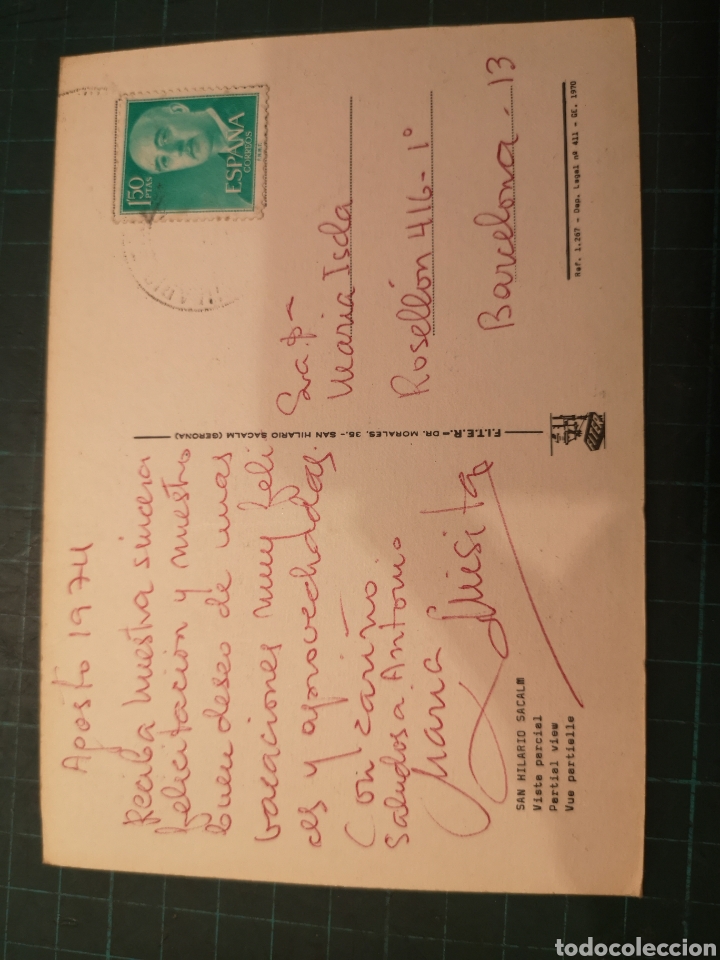 Agosto 1974
Reciba nuestra sincera
felicitación y nuestro
buen deseo de unas
vacaciones muy feli
ces y aprovechadas.
Con cariño.
Saludos a Antonio
Maria Luisita
SAN HILARIO SACALM
Vista parcial
Partial view
Vue partielle
F.I.T.E.R. - DR. MORALES, 35.- SAN HILARIO SACALM (GERONA)
1'50
PTAS
ESPAÑA
CORREOS
Srta
Maria Isda
Rosellón 416-1º
Barcelona - 13
Ref. 1.267 - Dep. Legal nº 411 - GE. 1970
todocoleccion